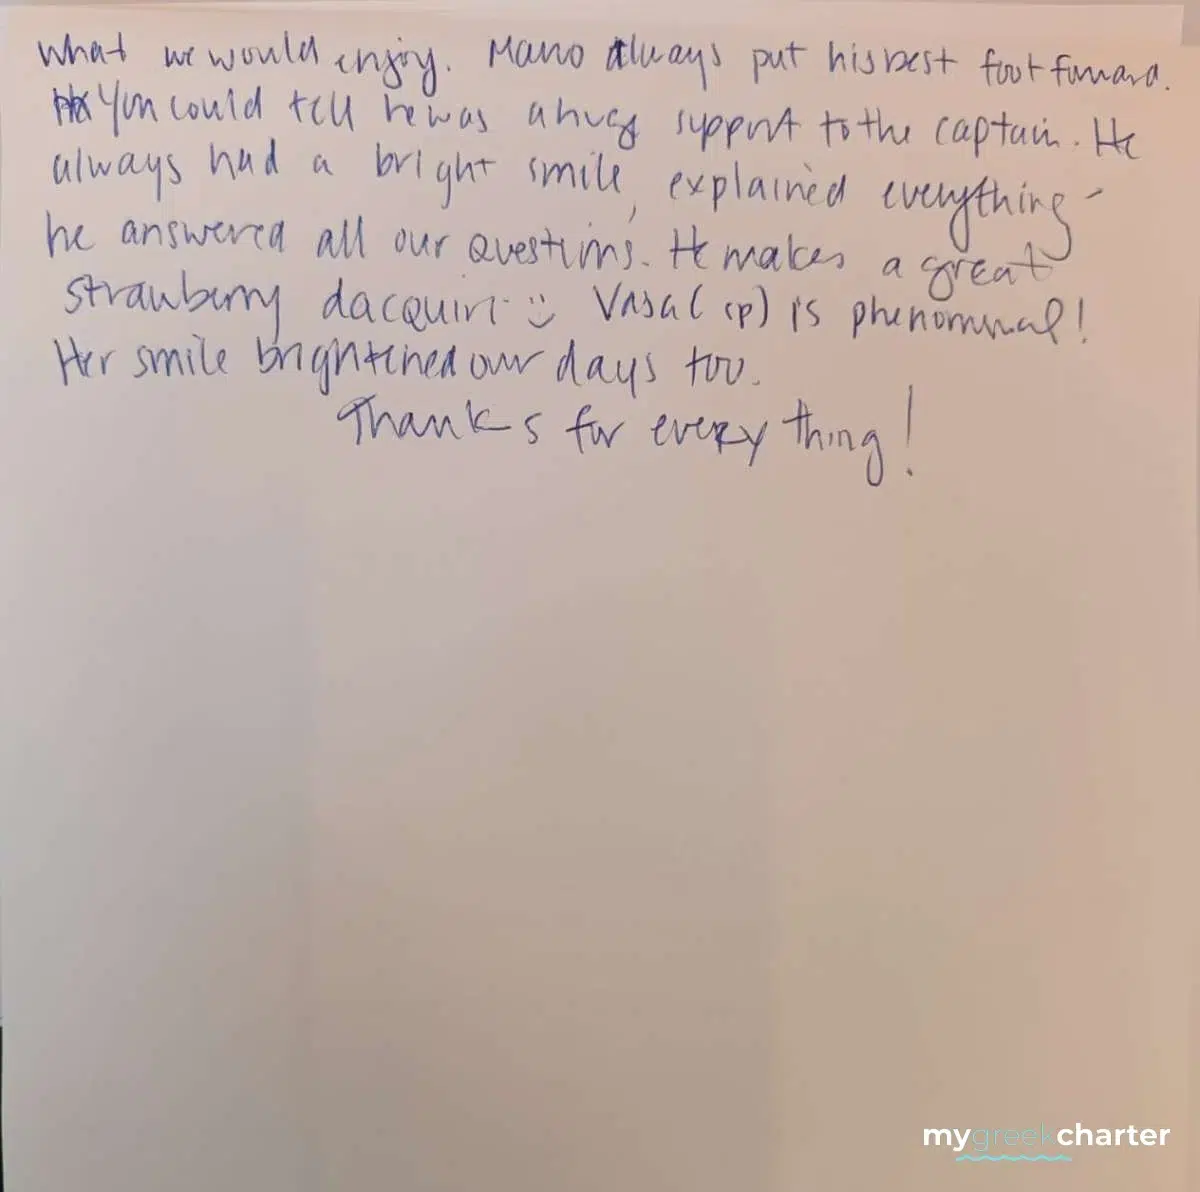 what we would enjoy. Mano Always put his best foot forward.
You could tell he was a huge support to the captain. He
always had a bright smile, explained everything -
he answered all our questions. He makes a great
strawberry dacquiri :) Vasa (sp) is phenominal!
Her smile brightened our days too.
Thanks for every thing!
mygreekcharter